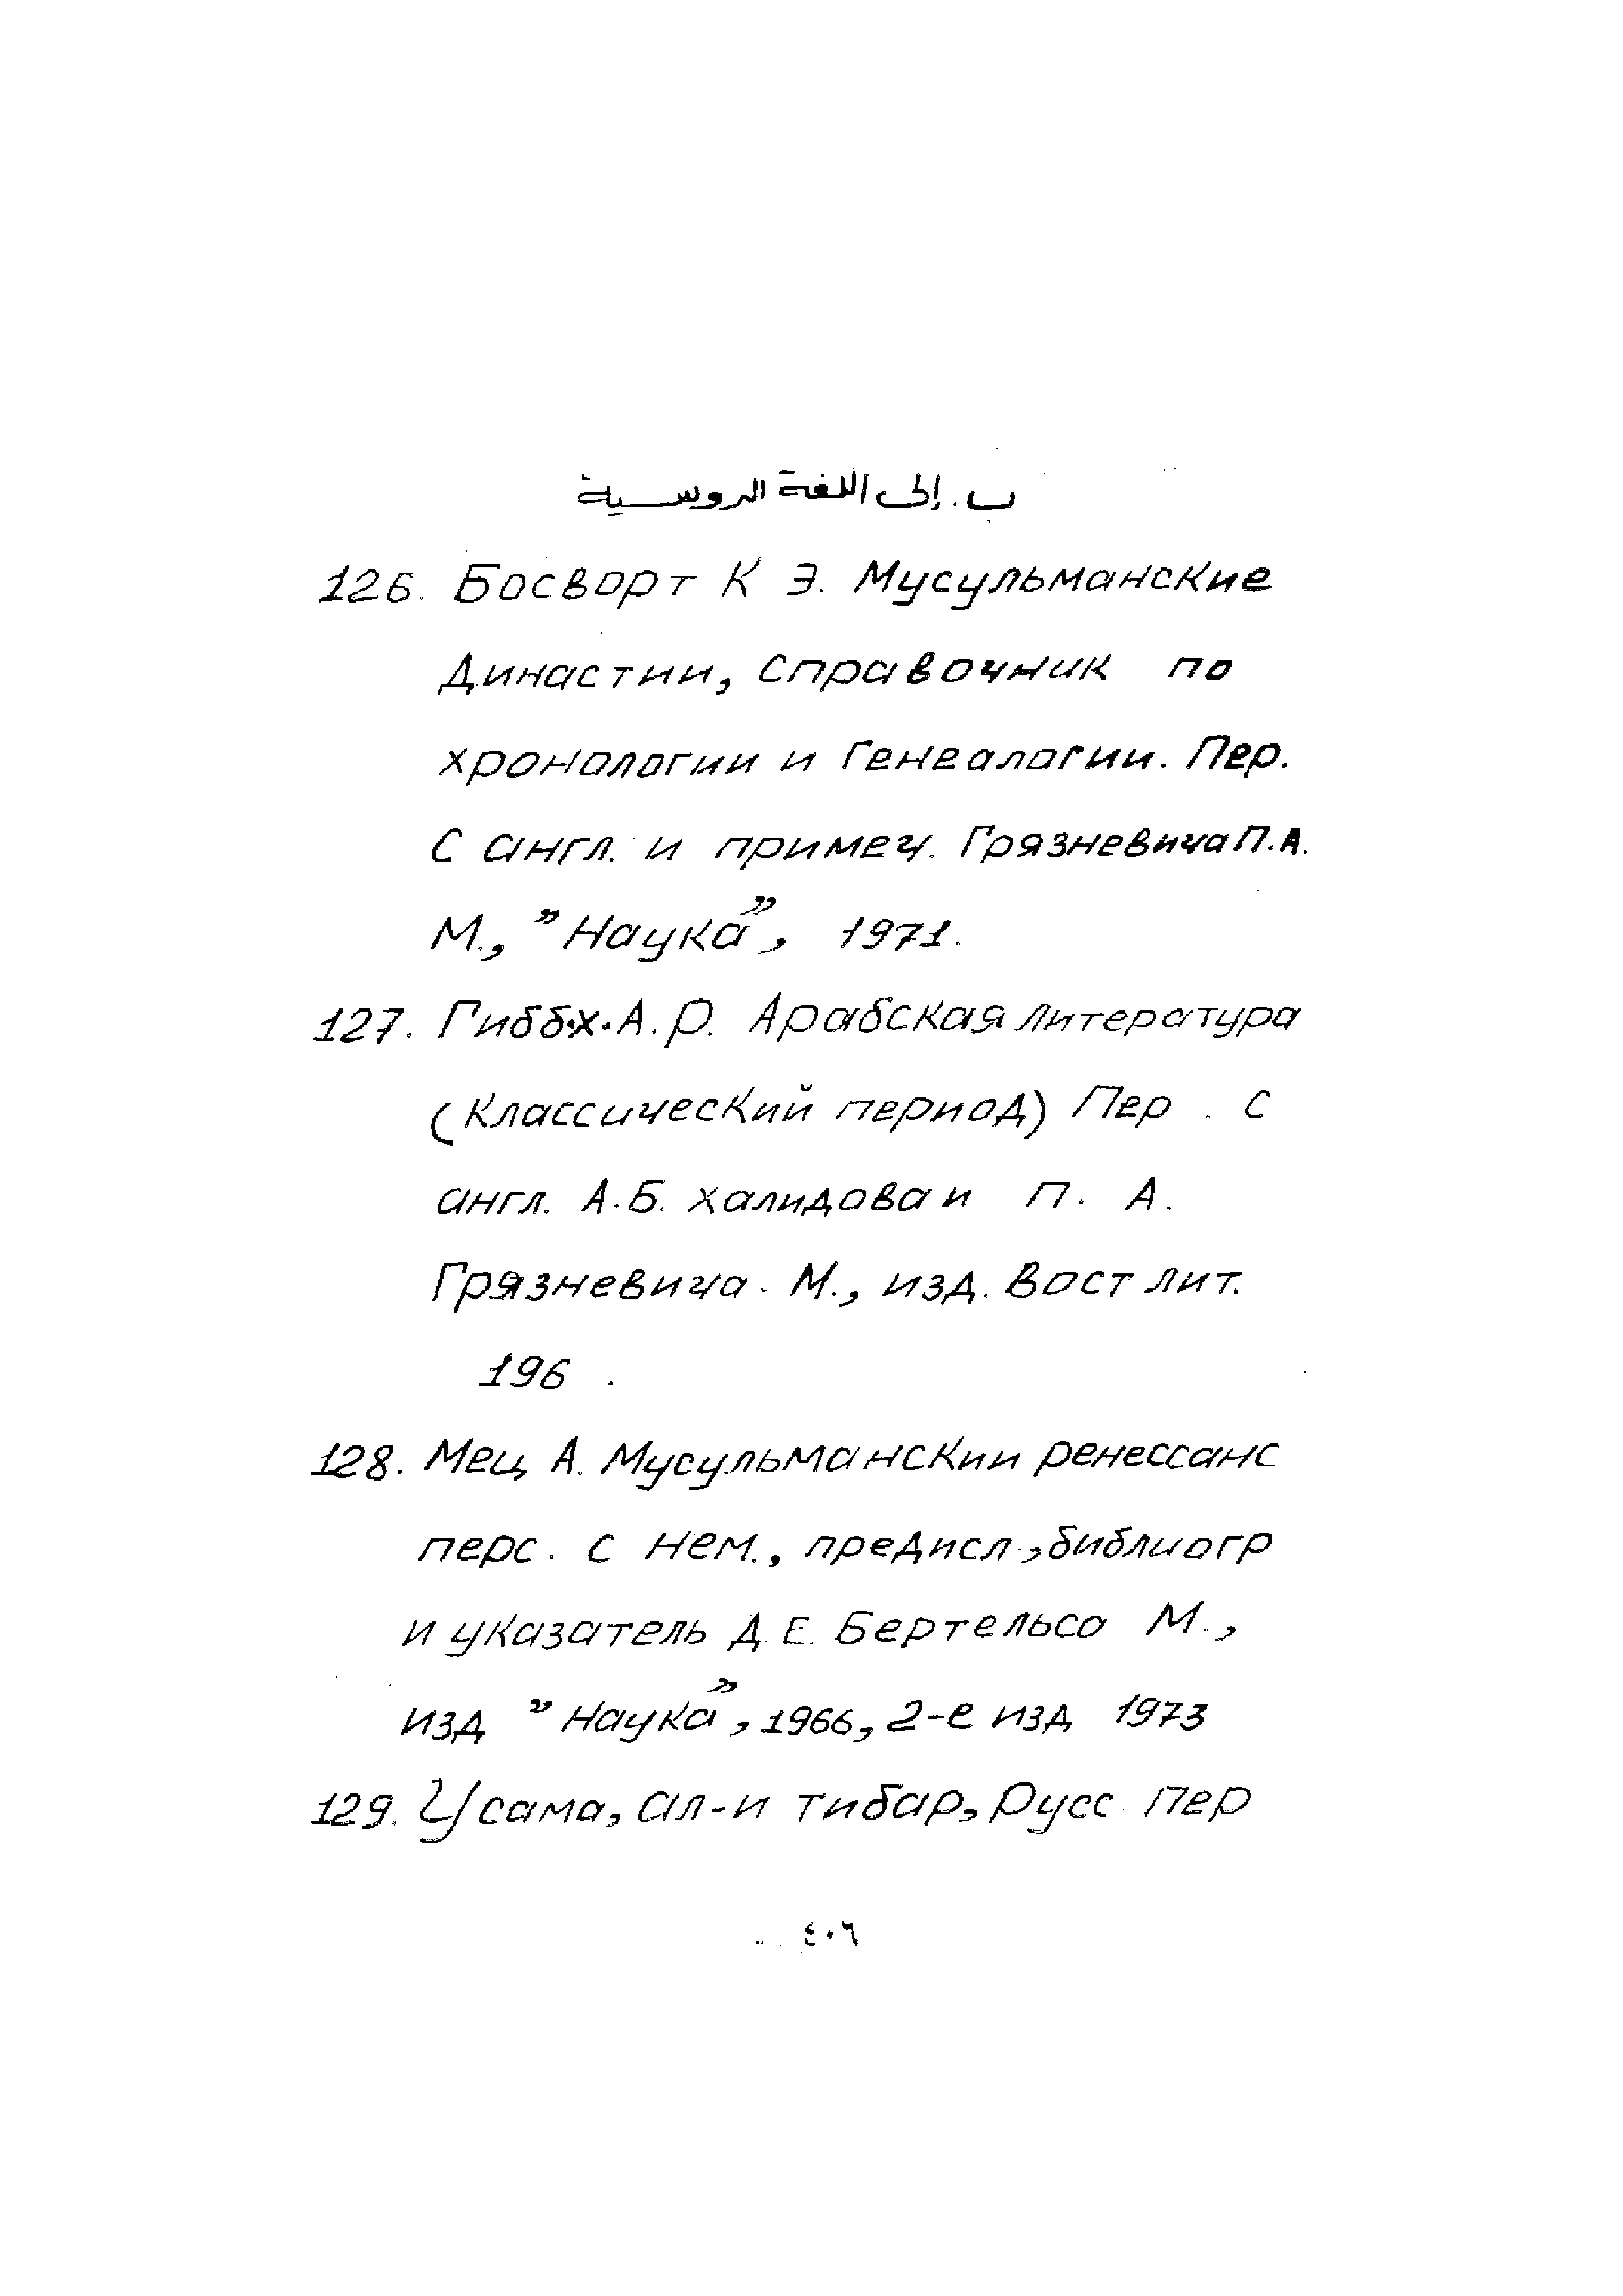 ب. إلى اللغة الروسية
126. Босворт К Э. Мусульманские
Династии, Справочник по
хронологии и Генеалогии. Пер.
С англ. и примеч. Грязневича П.А.
М., "Наука", 1971.
127. Гибб.Х.А.Р. Арабская литература
(Классический период) Пер . С
англ. А.Б. Халидова и П. А.
Грязневича. М., изд. Вост лит.
196 .
128. Мец А. Мусульманскии ренессанс
перс. с нем., предисл.,библиогр
и указатель Д.Е. Бертельсо М.,
изд "Наука", 1966, 2-е изд 1973
129. Усама, ал-и тибар, Русс. Пер
٤٠٦